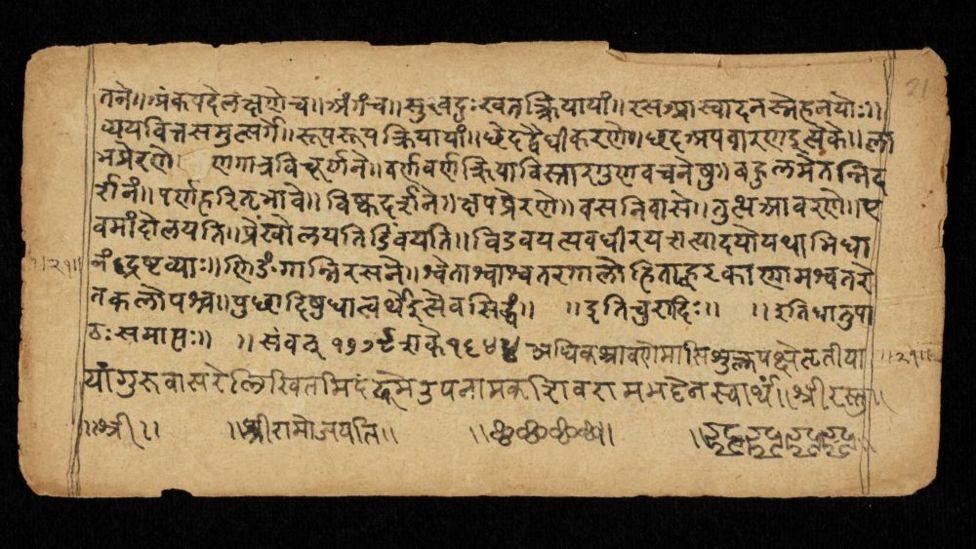 तने॥अंकपदेलक्षणेच॥अंगंच॥सुखदुःखतत्क्रियायां॥रसआस्वादनस्नेहनयोः॥
व्ययवित्तसमुत्सर्गे॥रूपरूपक्रियायां॥छेदद्वैधीकरणे॥छदअपवारणइत्येके॥ला
भप्रेरणे॥ व्रणगात्रविचूर्णने॥वर्णवर्णक्रियाविस्तारगुणवचनेषु॥बहुलमेतन्निद
र्शनं॥पर्णहरितभावे॥विष्कदर्शने॥क्षपप्रेरणे॥वसनिवासे॥तुत्थआवरणे॥ए
वमांदोलयति॥प्रेंखोलयति विडंबयति॥ अवधीरयति इत्यादयोयथाभिधा
नं द्रष्टव्याः॥णिङंगान्निरसने॥श्वेताश्वाश्वतरगालोडिताह्वरकाणामश्वतरे
तकलोपश्च॥पुच्छादिषुधात्वर्थेइत्येवसिद्धं॥ ॥इतिचुरादिः॥ ॥इतिधातुपा
ठःसमाप्तः॥ ॥संवत् १७७९शके१६४४ अधिकश्रावणेमासिशुक्लपक्षेतृतीया
॥२१॥
॥२१॥
यांगुरुवासरेलिखितमिदं उपनामक रामभट्टेनस्वार्थं॥श्रीरस्तु॥
॥श्री॥ ॥श्रीरामोजयति॥ ॥छ॥छ॥छ॥छ॥
21